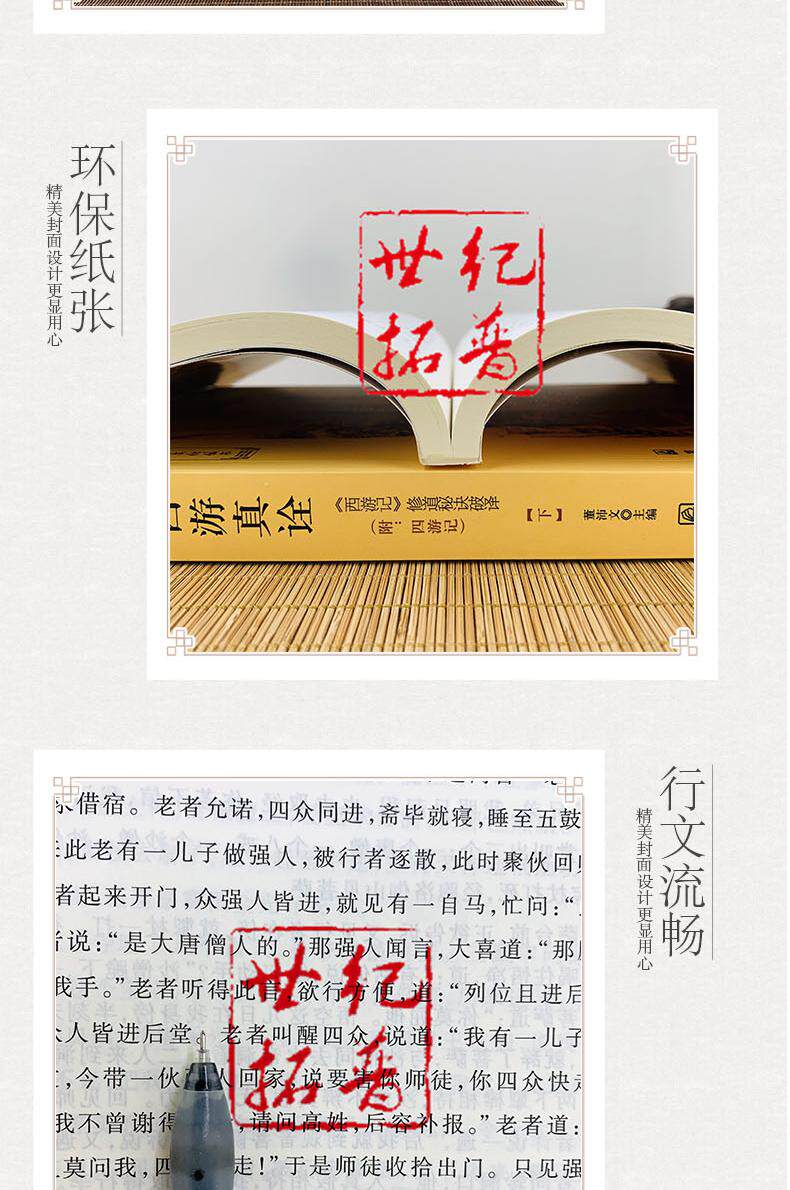 环保纸张
精美封面设计更显用心
世纪
拓普
游真诠
《西游记》修道秘诀破译
(附：四游记)
【下】
董沛文◎主编
行文流畅
精美封面设计更显用心
借宿。老者允诺,四众同进,斋毕就寝,睡至五鼓
此老有一儿子做强人,被行者逐散,此时聚伙回
者起来开门,众强人皆进,就见有一白马,忙问:“
说:“是大唐僧人的。”那强人闻言,大喜道:“那
我手。”老者听得此言,欲行方便,道:“列位且进后
人皆进后堂。老者叫醒四众,说道:“我有一儿子
,今带一伙 人回家,说要害你师徒,你四众快
我不曾谢得 ,请问高姓,后容补报。”老者道:
莫问我,四 走!”于是师徒收拾出门。只见强
世纪
拓普